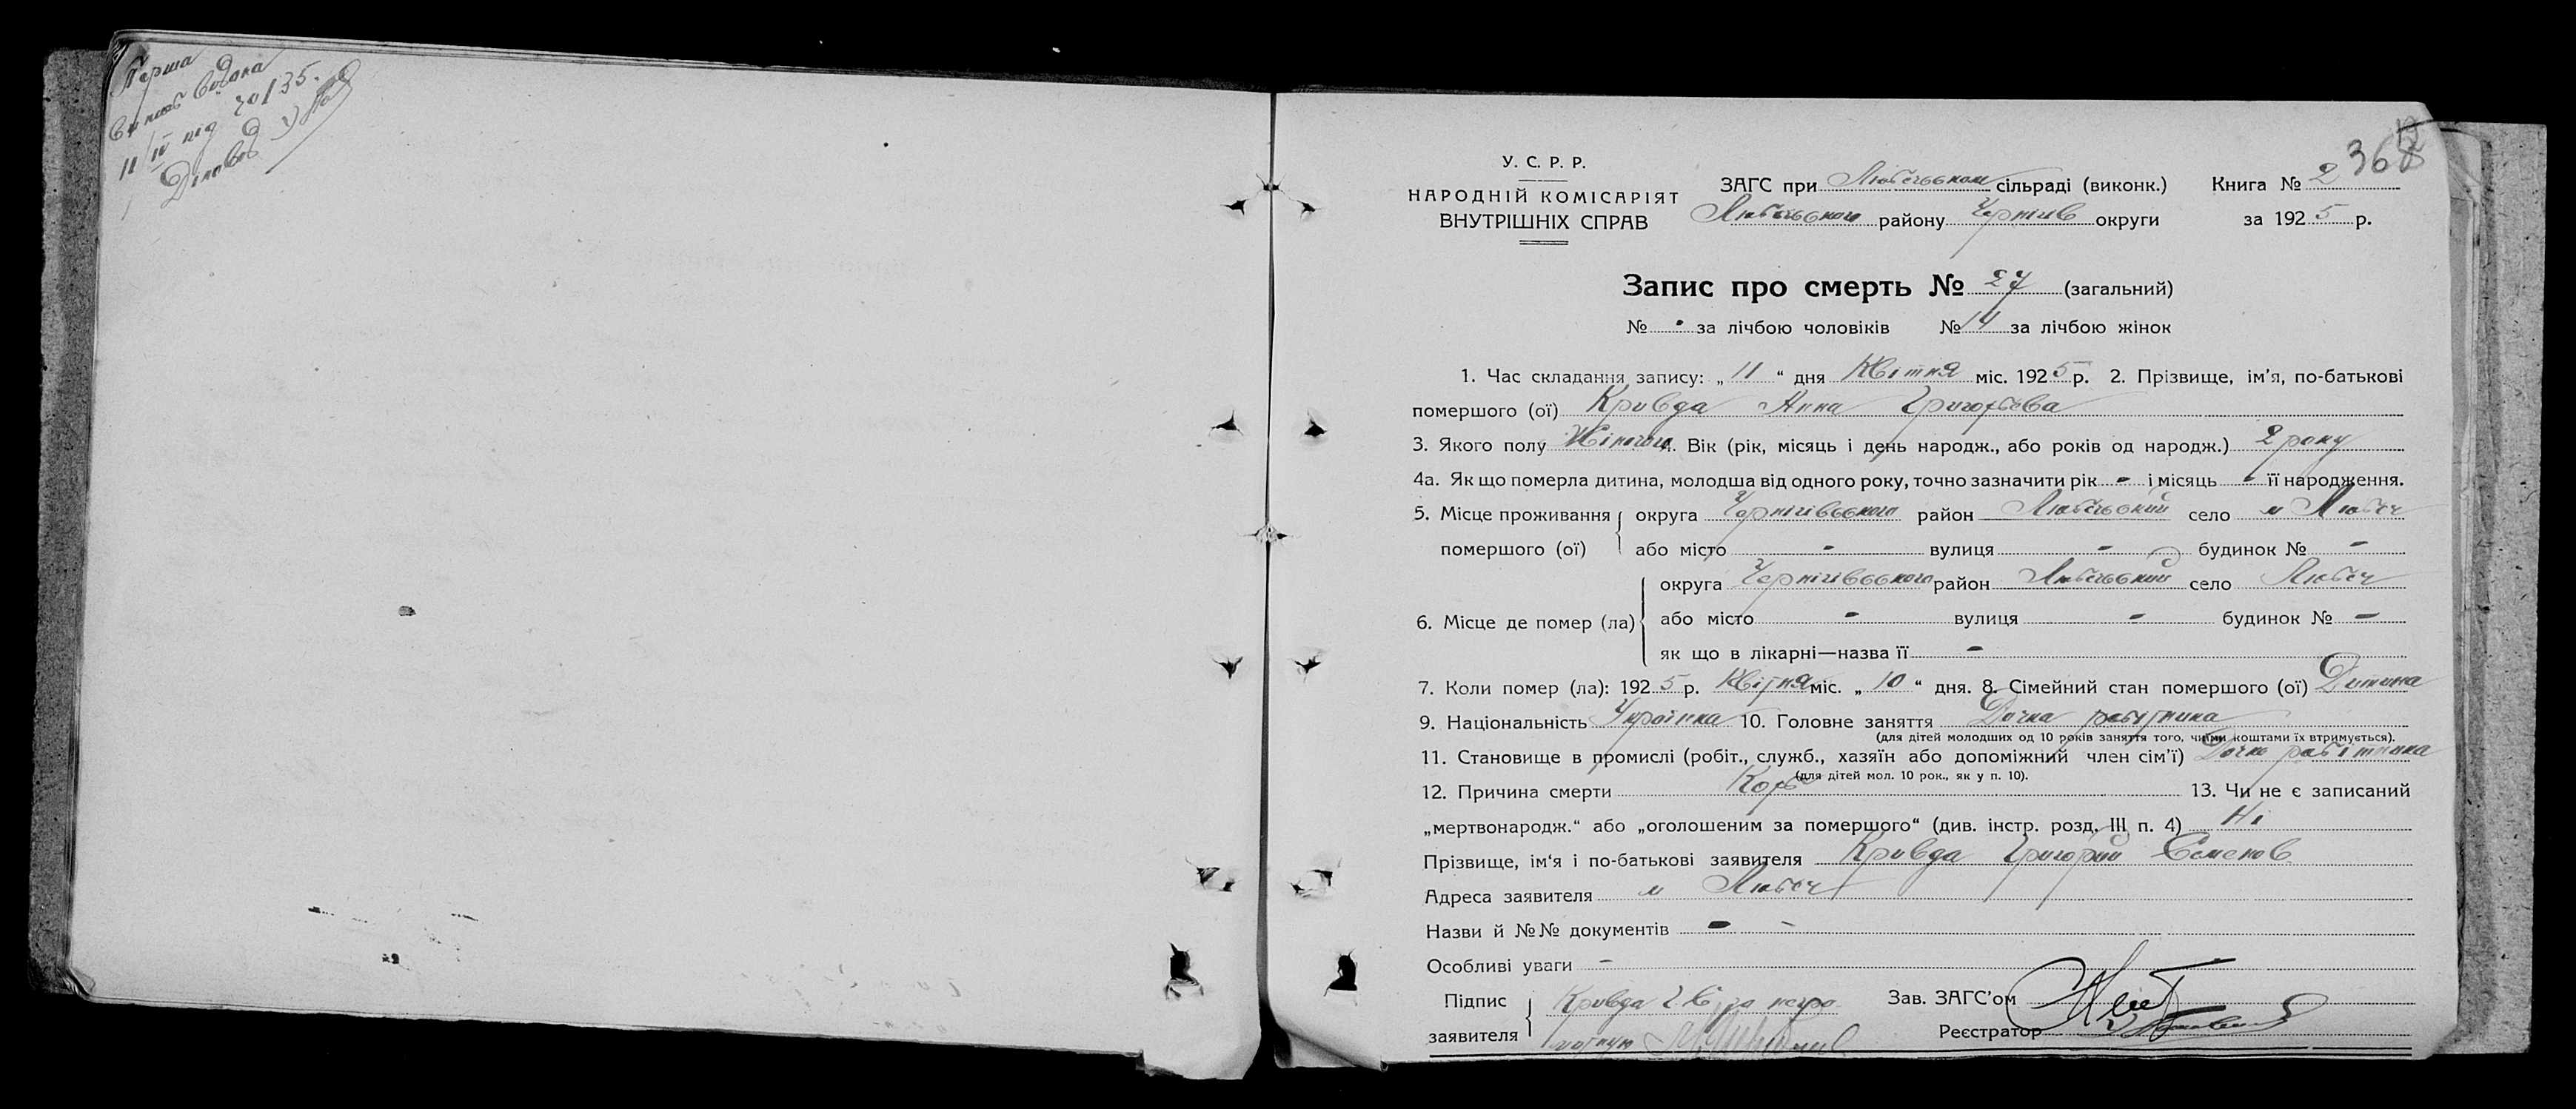 Перша
виписъ видана
11/IV під № 135.
Діловод
368
У. С. Р. Р.
НАРОДНІЙ КОМІСАРІЯТ
ВНУТРІШНІХ СПРАВ
ЗАГС при Любечськом сільраді (виконк.) Книга № 2
Любечського району Чернігів округи за 1925 р.
Запис про смерть № 27 (загальний)
№ - за лічбою чоловіків № 14 за лічбою жінок
1. Час складання запису: „11“ дня Квітня міс. 1925 р. 2. Прізвище, ім’я, по-батькові
помершого (ої) Кривда Анна Григорьєва
3. Якого полу Жіночого 4. Вік (рік, місяць і день народж., або років од народж.) 2 року
4а. Як що померла дитина, молодша від одного року, точно зазначити рік - і місяць - її народження.
5. Місце проживання помершого (ої) округа Чернігівського район Любечський село м Любеч
або місто - вулиця - будинок № -
6. Місце де помер (ла) округа Чернігівського район Любечський село Любеч
або місто - вулиця - будинок № -
як що в лікарні—назва її -
7. Коли помер (ла): 1925 р. Квітня міс. „10“ дня. 8. Сімейний стан помершого (ої) Дитина
9. Національність Українка 10. Головне заняття Дочка робітника
(для дітей молодших од 10 років заняття того, чиїми коштами їх втримується).
11. Становище в промислі (робіт., служб., хазяїн або допоміжний член сім’ї) Дочка робітника
(для дітей мол. 10 рок., як у п. 10).
12. Причина смерти Корь 13. Чи не є записаний
„мертвонародж.“ або „оголошеним за помершого“ (див. інстр. розд. III п. 4) Ні
Прізвище, ім‘я і по-батькові заявителя Кривда Григорий Семенов
Адреса заявителя м Любеч
Назви й №№ документів - -
Особливі уваги -
Підпис заявителя Кривда Г С за негра
мотную
Зав. ЗАГС’ом
Реєстратор